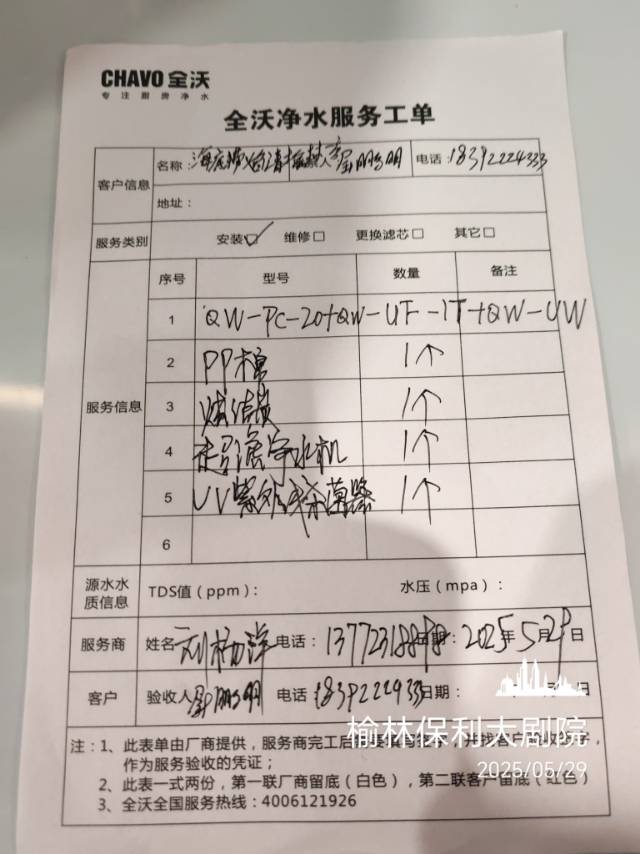 CHAVO 全沃
专注厨房净水
全沃净水服务工单
客户信息
名称：海底捞 电话：18392224333
地址：
服务类别 安装☑ 维修□ 更换滤芯□ 其它□
服务信息
序号 型号 数量 备注
1 QW-PC-20+QW-UF-1T+QW-UW
2 PP棉 1个
3 1个
4 超滤净水机 1个
5 UV紫外线杀菌器 1个
6
源水水质信息 TDS值（ppm）： 水压（mpa）：
服务商 姓名 刘杨洋 电话：日期：2025年5月29日
客户 验收人 电话：18392224333 日期： 日
注：1、此表单由厂商提供，服务商完工后
作为服务验收的凭证；
2、此表一式两份，第一联厂商留底（白色），第二联客户留底（红色）
3、全沃全国服务热线：4006121926
榆林保利大剧院
2025/05/29